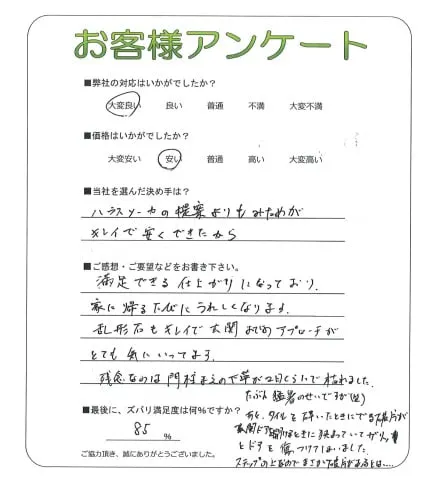 お客様アンケート
■弊社の対応はいかがでしたか？
大変良い 良い 普通 不満 大変不満
■価格はいかがでしたか？
大変安い 安い 普通 高い 大変高い
■当社を選んだ決め手は？
ハウスメーカの提案よりもみためが
キレイで安くできたから
■ご感想・ご要望などをお書き下さい。
満足できる仕上がりになっており、
家に帰るたびにうれしくなります。
乱形石もキレイで玄関までのアプローチが
とても気にいってます。
残念なのは門柱まえの下草が2日くらいで枯れました。
たぶん猛暑のせいですが(泣)
あと、タイルを砕いたときにできる破片が
■最後に、ズバリ満足度は何％ですか？
玄関ドア開けるときに挟まっていてガリッ
とドアを傷つけてしまいました。
85 %
ステップの上なのでまさか破片があるとは....
ご協力頂き、誠にありがとうございました。